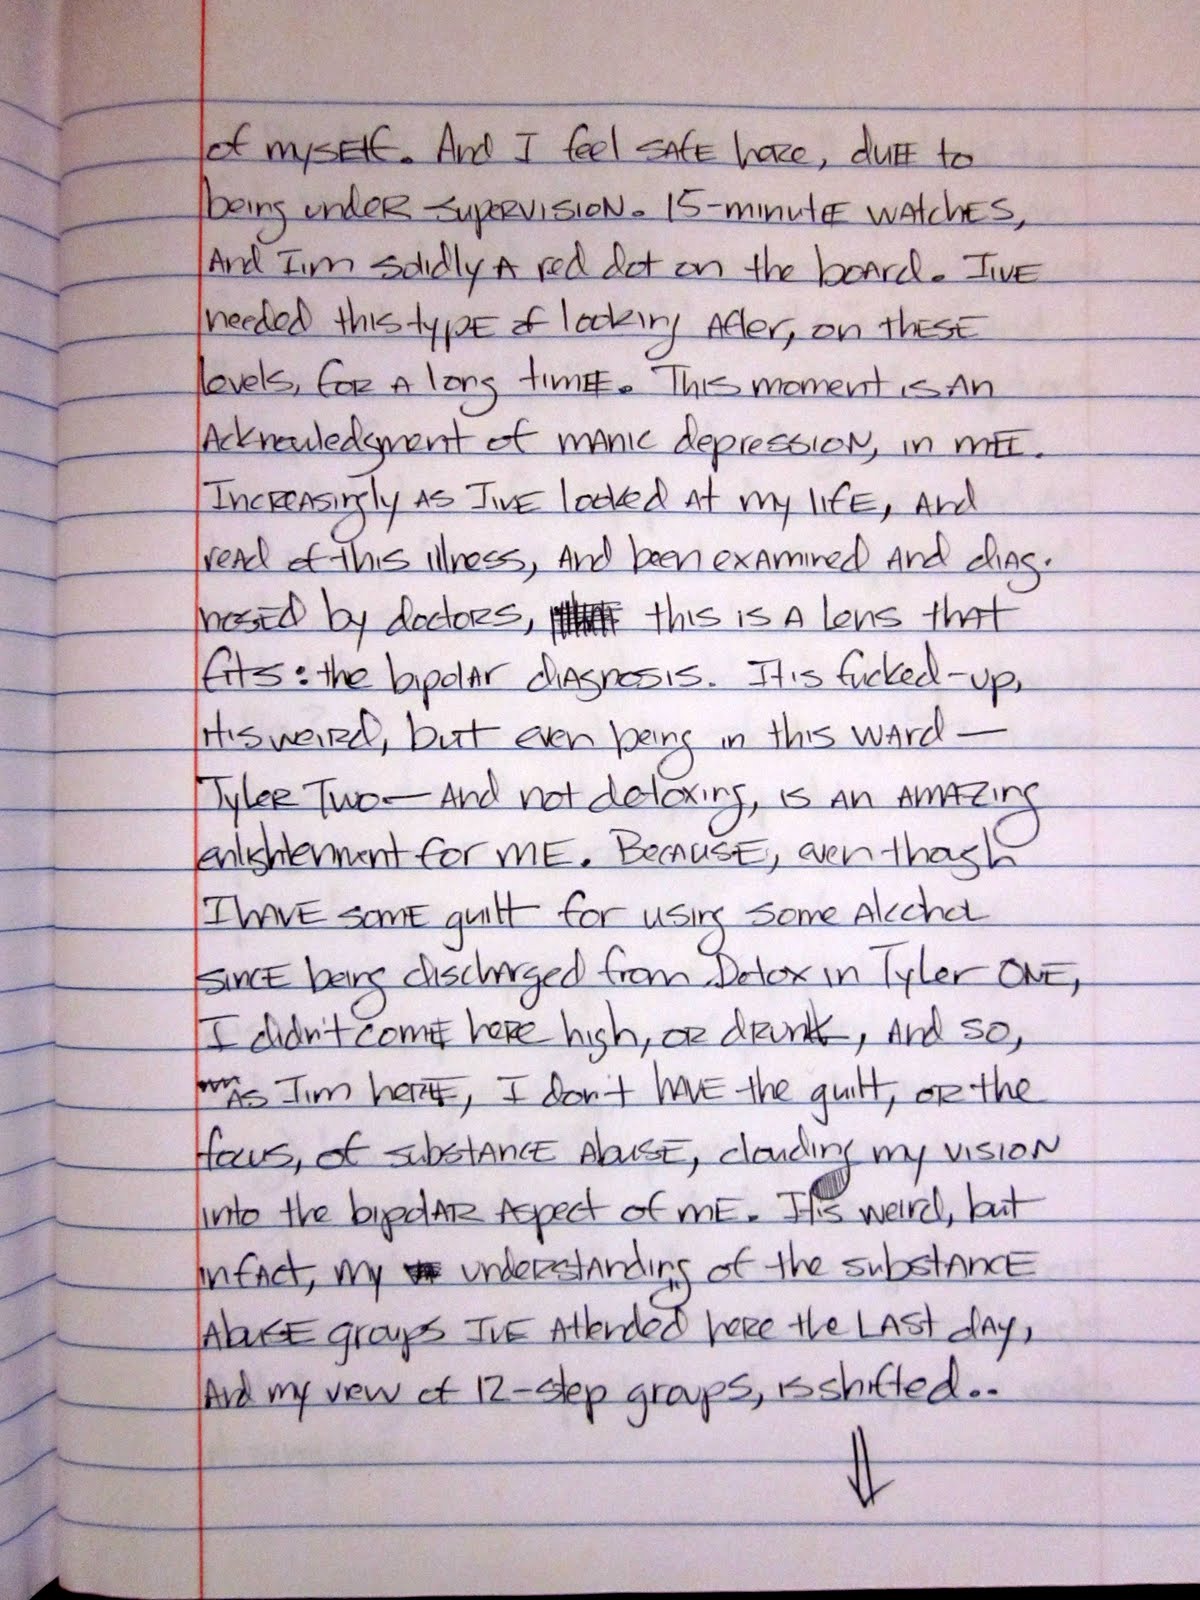 of myself. And I feel safe here, due to
being under supervision. 15-minute watches,
And I'm solidly a red dot on the board. I've
needed this type of looking after, on these
levels, for a long time. This moment is an
Acknowledgment of manic depression, in me.
Increasingly as I've looked at my life, and
read of this illness, and been examined and diag-
nosed by doctors, this is a lens that
fits: the bipolar diagnosis. It is fucked-up,
it is weird, but even being in this ward —
Tyler Two — and not detoxing, is an amazing
enlightenment for me. Because, even though
I have some guilt for using some alcohol
since being discharged from Detox in Tyler One,
I didn't come here high, or drunk, and so,
as I'm here, I don't have the guilt, or the
focus, of substance abuse, clouding my vision
into the bipolar aspect of me. It is weird, but
in fact, my understanding of the substance
abuse groups I've attended here the last day,
and my view of 12-step groups, is shifted..